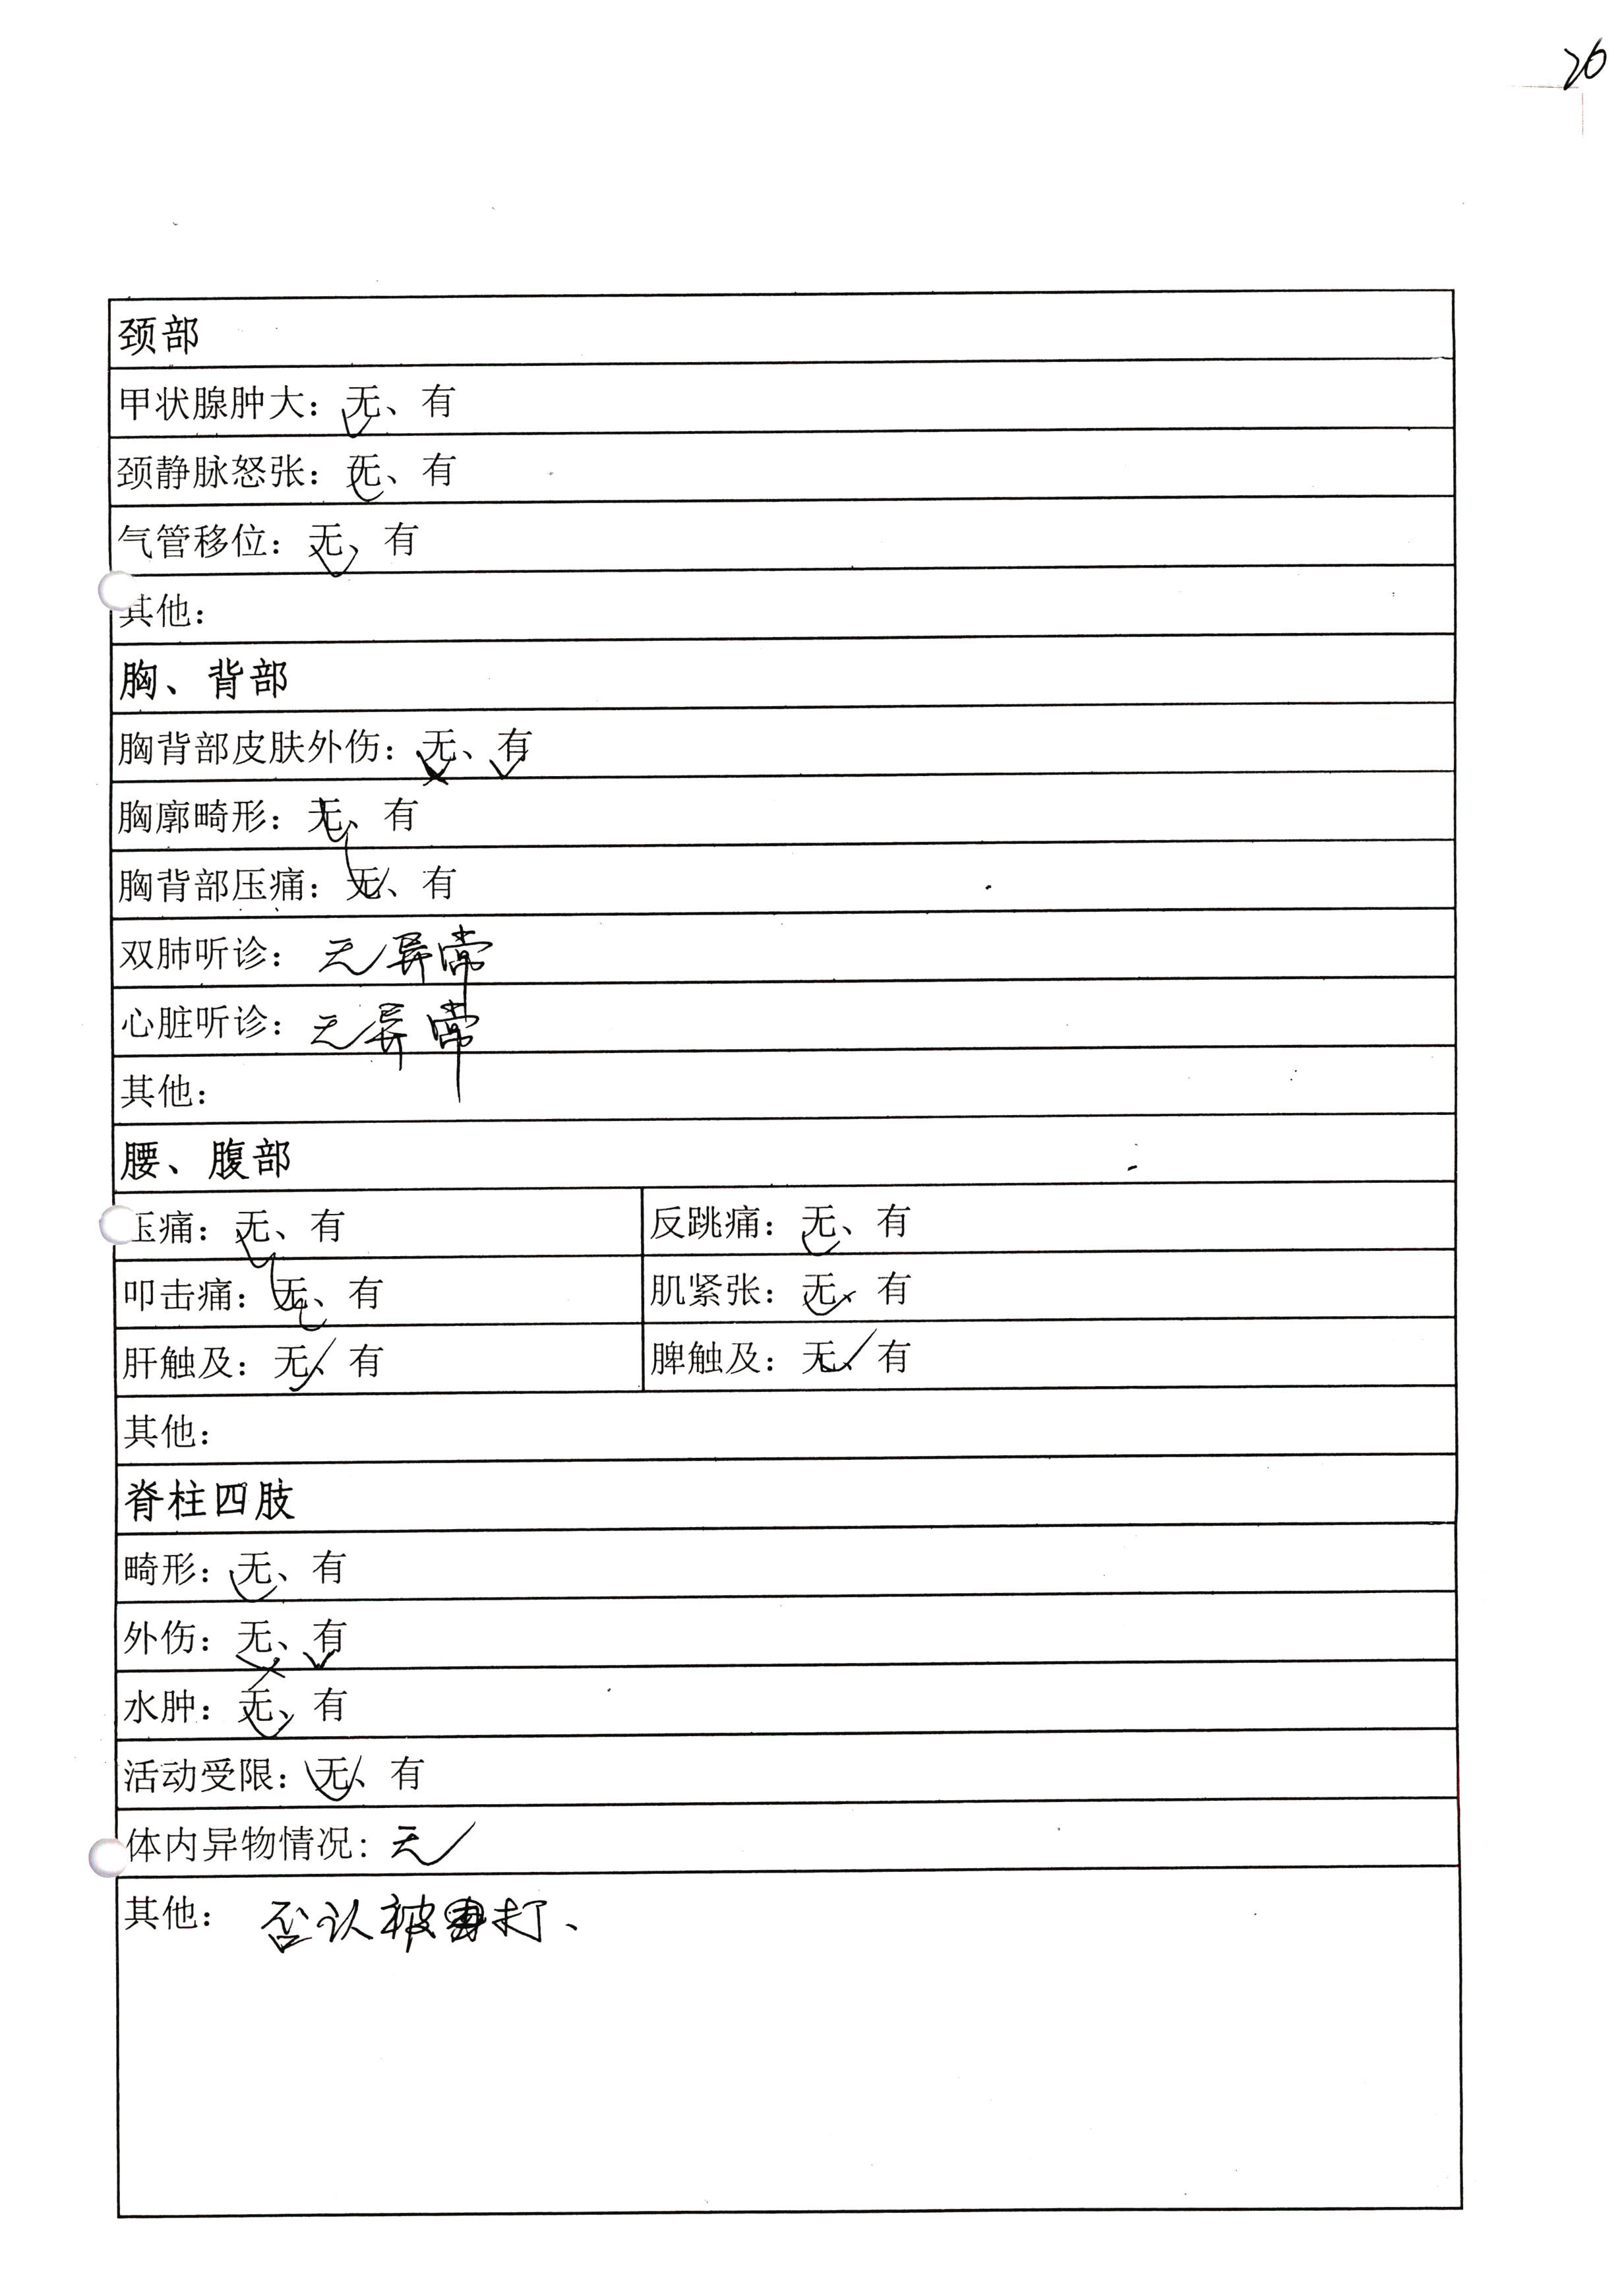 26
颈部
甲状腺肿大：无、有
颈静脉怒张：无、有
气管移位：无、有
其他：
胸、背部
胸背部皮肤外伤：无、有
胸廓畸形：无、有
胸背部压痛：无、有
双肺听诊：无异常
心脏听诊：无异常
其他：
腰、腹部
压痛：无、有 反跳痛：无、有
叩击痛：无、有 肌紧张：无、有
肝触及：无、有 脾触及：无、有
其他：
脊柱四肢
畸形：无、有
外伤：无、有
水肿：无、有
活动受限：无、有
体内异物情况：无
其他：否认被打、